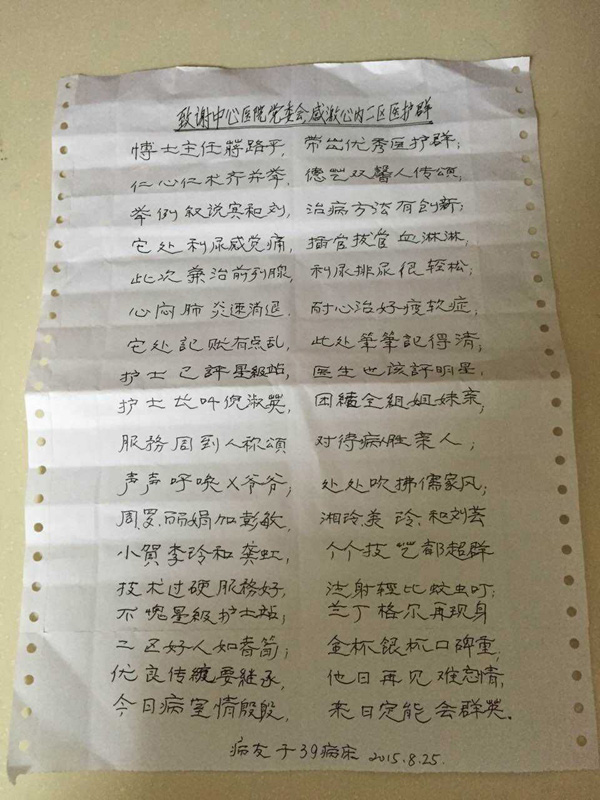 致谢中心医院党委会,感激心内二区医护群
博士主任蒋路平, 带出优秀医护群;
仁心仁术齐并举, 德艺双馨人传颂,
举例叙说宾和刘, 治病方法有创新;
它处利尿感觉痛, 插管拔管血淋淋,
此次兼治前列腺, 利尿排尿很轻松;
心闷肺炎速消退, 耐心治好疲软症,
它处記账有点乱, 此处筆筆記得清,
护士已評星級站, 医生也该評明星,
护士长叫倪淑英, 团結全組姐妹亲,
服務周到人称頌 对待病人胜亲人;
声声呼唤X爷爷, 处处吹拂儒家风;
周罗丽娟加彭敏, 湘玲美玲和刘芸
小賀李玲和龚虹, 个个技艺都超群
技术过硬服務好, 注射轻比蚊虫叮;
不愧星級护士站, 兰丁格尔再现身
二区好人如春笋; 金杯銀杯口碑重,
优良传統要継承, 他日再见难忘情,
今日病室情殷殷, 来日定能会群英.
病友于39病床 2015.8.25.